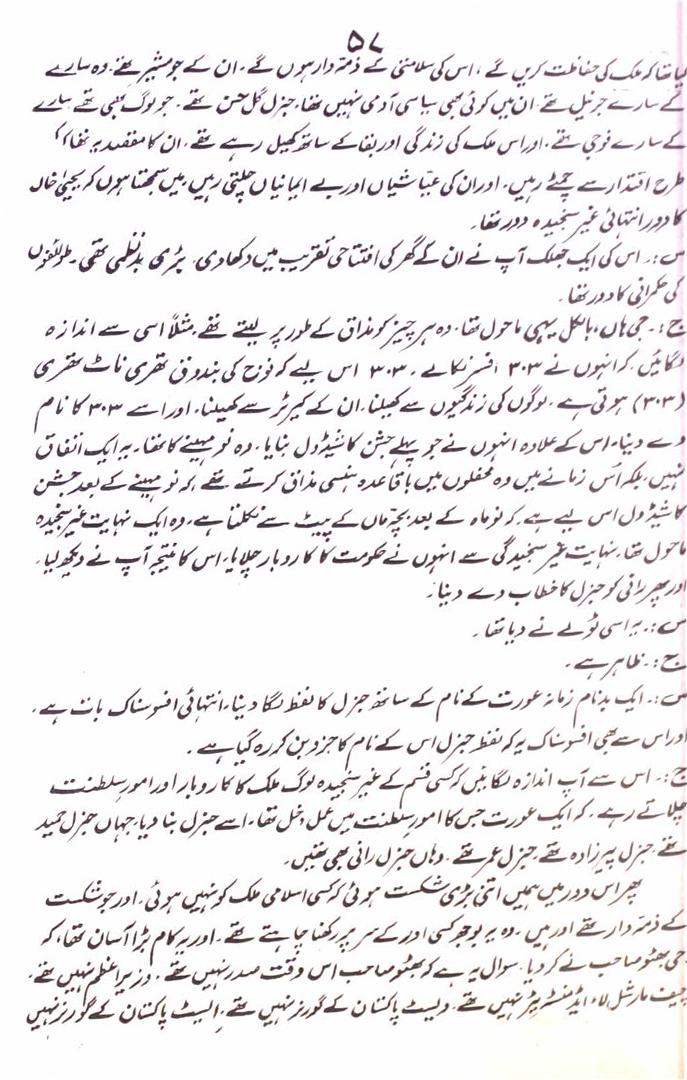 ۵۷
کیا تھا کہ ملک کی حفاظت کریں گے، اس کی سلامتی کے ذمہ دار ہوں گے۔ ان کے جو مشیر تھے، وہ سارے
کے سارے جرنیل تھے۔ ان میں کوئی بھی سیاسی آدمی نہیں تھا۔ جنرل گل حسن تھے۔ جو لوگ بھی تھے سارے
کے سارے فوجی تھے۔ اور اس ملک کی زندگی اور بقا کے ساتھ کھیل رہے تھے۔ ان کا مقصد یہ تھا
طرح اقتدار سے چمٹے رہیں۔ اور ان کی عیاشیاں اور بے ایمانیاں چلتی رہیں۔ میں سمجھتا ہوں کہ یحییٰ خاں
کا دور انتہائی غیر سنجیدہ دور تھا۔
س:۔ اس کی ایک جھلک آپ نے ان کے گھر کی افتتاحی تقریب میں دکھا دی۔ بڑی بدنظمی تھی۔ طوائفوں
کی حکمرانی کا دور تھا۔
ج:۔ جی ہاں، بالکل یہی ماحول تھا۔ وہ ہر چیز کو مذاق کے طور پر لیتے تھے۔ مثلاً اسی سے اندازہ
لگائیں۔ کہ انہوں نے ۳۰۳ افسر نکالے۔ ۳۰۳ اس لیے کہ فوج کی بندوق تھری ناٹ تھری
(۳۰۳) ہوتی ہے۔ لوگوں کی زندگیوں سے کھیلنا۔ ان کے کیرئر سے کھیلنا۔ اور اسے ۳۰۳ کا نام
دے دینا۔ اس کے علاوہ انہوں نے جو پہلے جشن کا شیڈول بنایا۔ وہ نو مہینے کا تھا۔ یہ ایک اتفاق
نہیں بلکہ اس زمانے میں وہ محفلوں میں باقاعدہ ہنسی مذاق کرتے تھے کہ نو مہینے کے بعد جشن
کا شیڈول اس لیے ہے۔ کہ نو ماہ کے بعد بچہ ماں کے پیٹ سے نکلتا ہے۔ وہ ایک نہایت غیر سنجیدہ
ماحول تھا۔ نہایت غیر سنجیدگی سے انہوں نے حکومت کا کاروبار چلایا۔ اس کا نتیجہ آپ نے دیکھ لیا۔
اور پھر رانی کو جنرل کا خطاب دے دینا۔
س:۔ یہ اسی ٹولے نے دیا تھا۔
ج:۔ ظاہر ہے۔
س:۔ ایک بدنام زمانہ عورت کے نام کے ساتھ جنرل کا لفظ لگا دینا۔ انتہائی افسوسناک بات ہے۔
اور اس سے بھی افسوسناک یہ کہ لفظ جنرل اس کے نام کا جزو بن کر رہ گیا ہے۔
ج:۔ اس سے آپ اندازہ لگائیں کہ کسی قسم کے غیر سنجیدہ لوگ ملک کا کاروبار اور امور سلطنت
چلاتے رہے۔ کہ ایک عورت جس کا امور سلطنت میں عمل دخل تھا۔ اسے جنرل بنا دیا۔ جہاں جنرل حمید
تھے۔ جنرل پیرزادہ تھے۔ جنرل عمر تھے۔ وہاں جنرل رانی بھی تھیں۔
پھر اس دور میں ہمیں اتنی بڑی شکست ہوئی کہ کسی اسلامی ملک کو نہیں ہوئی۔ اور جو شکست
کے ذمہ دار تھے اور ہیں۔ وہ یہ بوجھ کسی اور کے سر پر رکھنا چاہتے تھے۔ اور یہ کام بڑا آسان تھا، کہ
جی بھٹو صاحب نے کر دیا۔ سوال یہ ہے کہ بھٹو صاحب اس وقت صدر نہیں تھے۔ وزیراعظم نہیں تھے۔
چیف مارشل لاء ایڈمنسٹریٹر نہیں تھے۔ ویسٹ پاکستان کے گورنر نہیں تھے۔ ایسٹ پاکستان کے گورنر نہیں